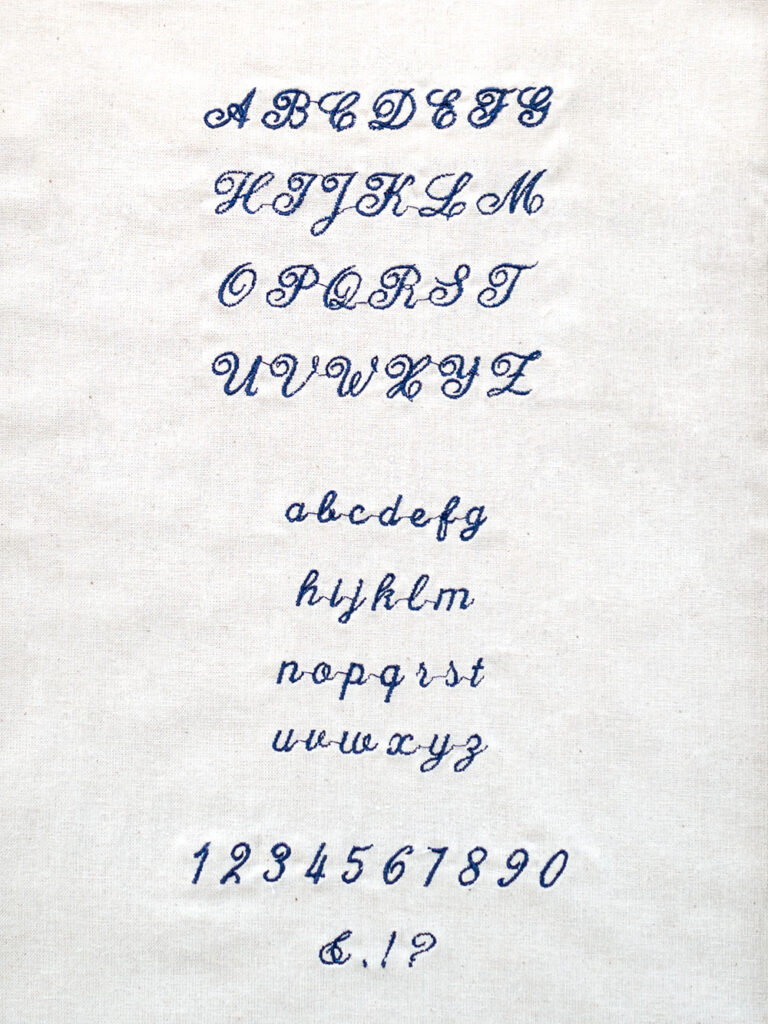 ABCDEFG
HIJKLM
OPQRST
UVWXYZ
abcdefg
hijklm
nopqrst
uvwxyz
1234567890
&.!?